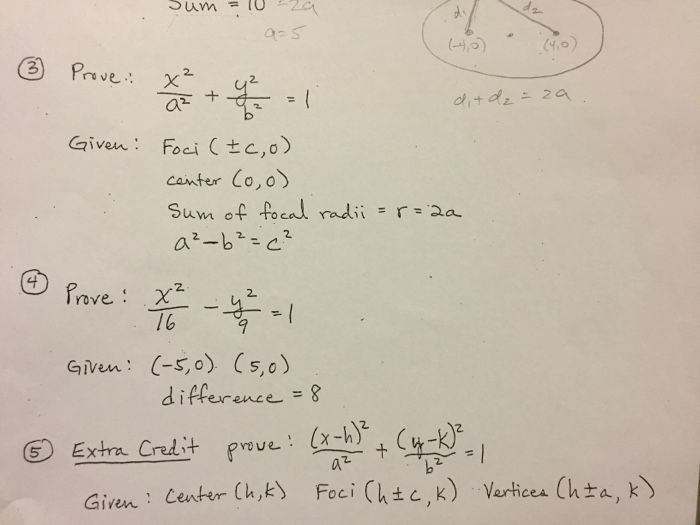 Sum = 10 = 2a
a = 5
d₁ d₂
(-4,0) (4,0)
d₁ + d₂ = 2a
③ Prove: x²/a² + y²/b² = 1
Given: Foci (±c,0)
center (0,0)
Sum of focal radii = r = 2a
a² - b² = c²
④ Prove: x²/16 - y²/9 = 1
Given: (-5,0) (5,0)
difference = 8
⑤ Extra Credit prove: (x-h)²/a² + (y-k)²/b² = 1
Given: Center (h,k) Foci (h±c,k) Vertices (h±a, k)